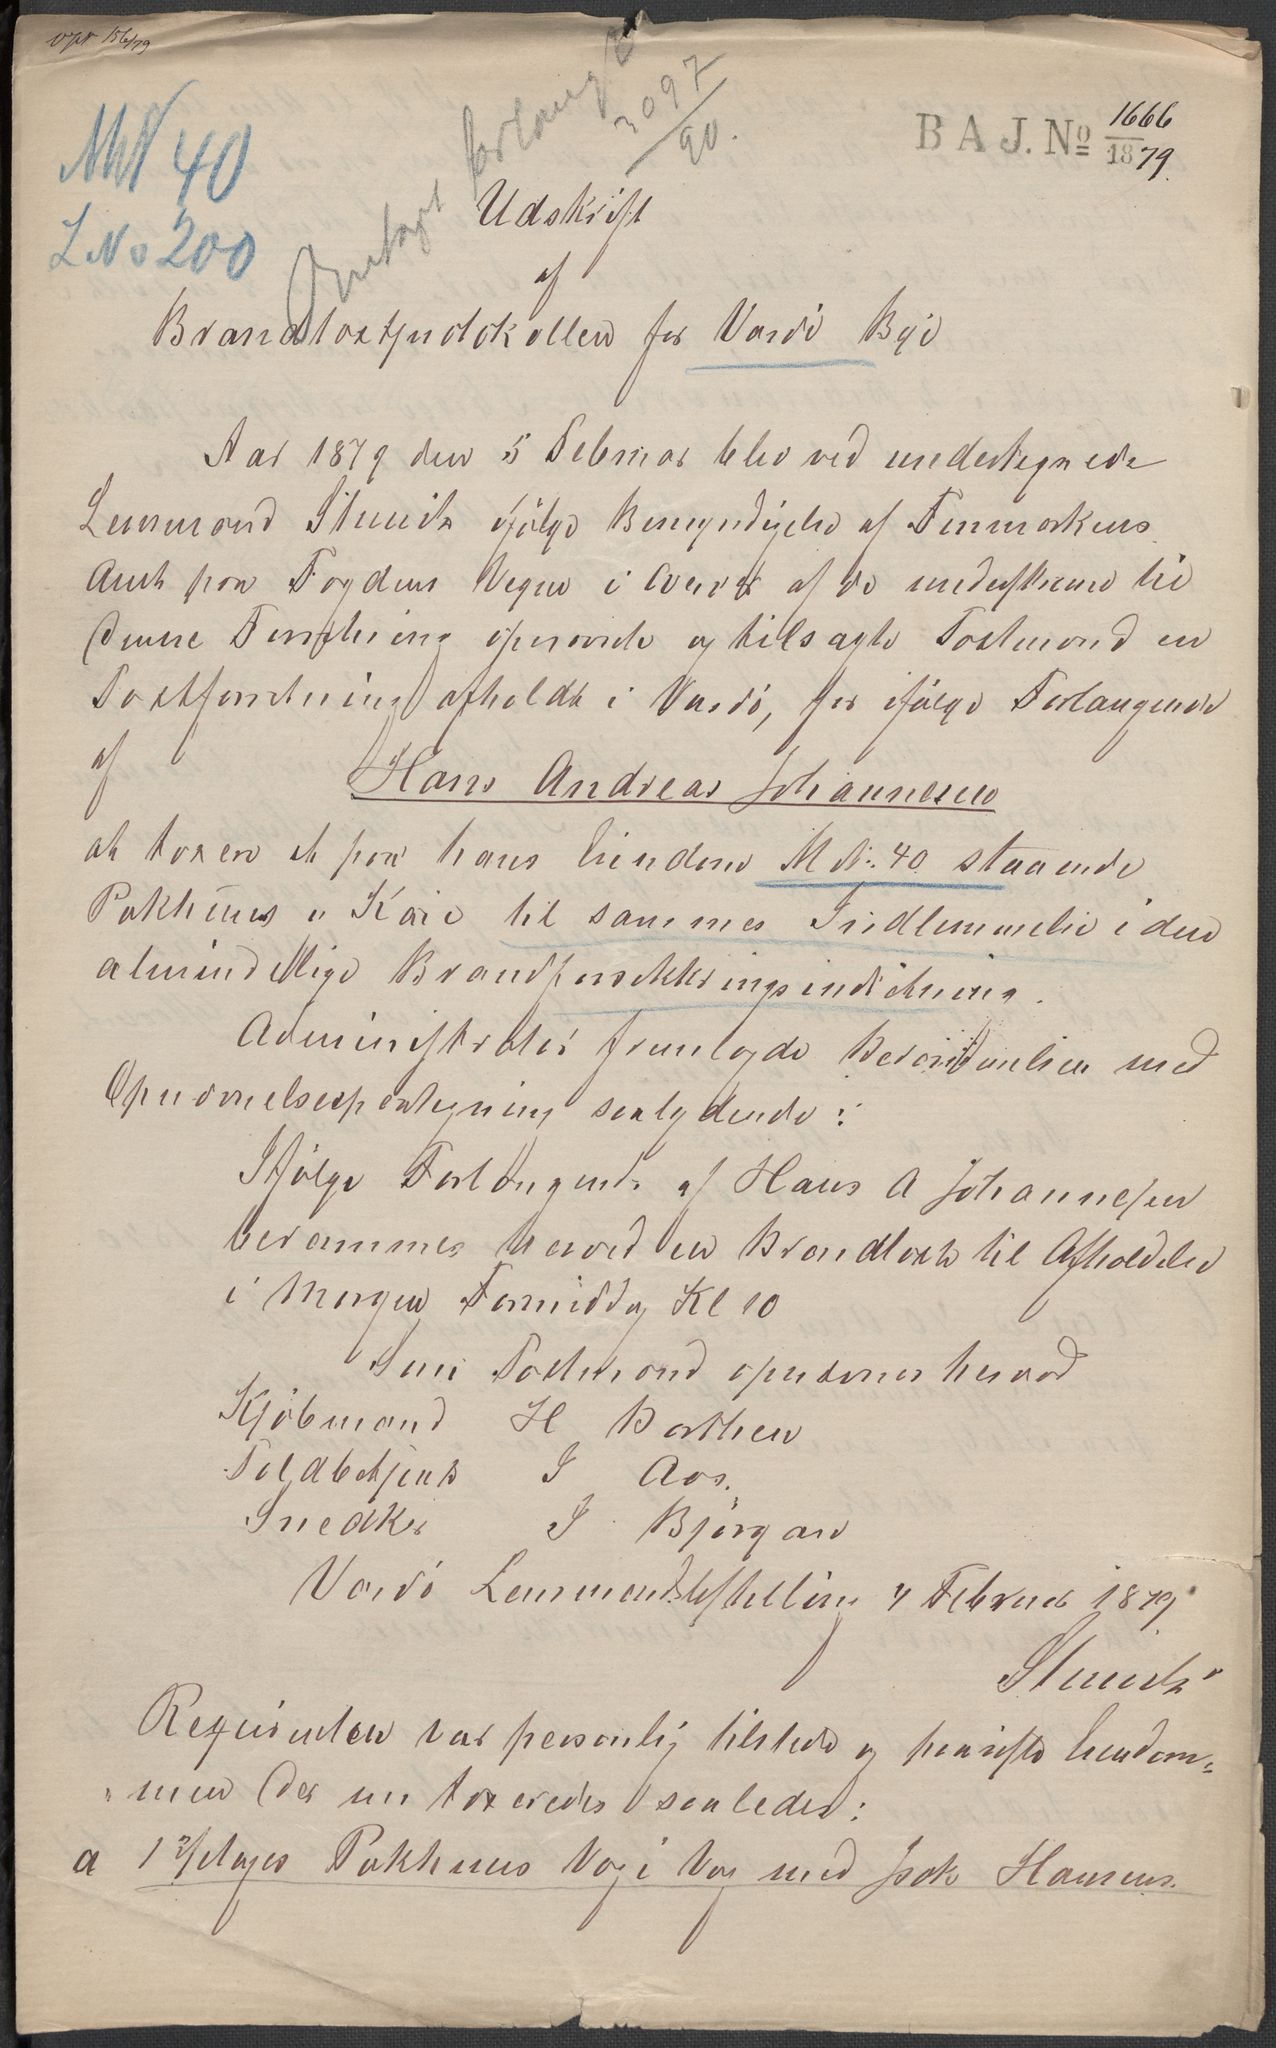 opt 156/79
MN 40
LNo 200
Omtaxt forlangt
3097/90.
B A J. No 1666/1879.
Udskrift
af
Brandtaxtprotokollen for Vardö By
Aar 1879 den 5 Februar blev ved undertegnede
Lensmand ifölge Bemyndigelse af Finmarkens
Amt paa Fogdens Vegne i Overvær af de underskrevne til
denne Forretning opnævnte og tilsagte Taxtmænd en
Taxtforretning afholdt i Vardö, for ifölge Forlangende
af Hans Andreas Johannesen
at taxere et paa hans Eiendom M No. 40 staaende
Pakhuus & Kai til sammes Indlemmelse i den
almindelige Brandforsikkringsindretning.
Administrator fremlagde Berammelsen med
Opnævnelsespaategning saalydende:
Ifölge Forlangende af Hans A Johannesen
berammes herved en Brandtaxt til Afholdelse
i Morgen Formiddag Kl 10
Som Taxtmænd opnævnes herved
Kjöbmand H Barthen
Toldbetjent I Aas.
Snedker I Björgan
Vardö Lensmandsbestilling 4 Februar 1879
Reqvirenten var personlig tilstede og paaviste Eiendom-
men der nu taxeredes saaledes:
a 1 etages Pakhuus Væg i Væg med Isak Hansens.